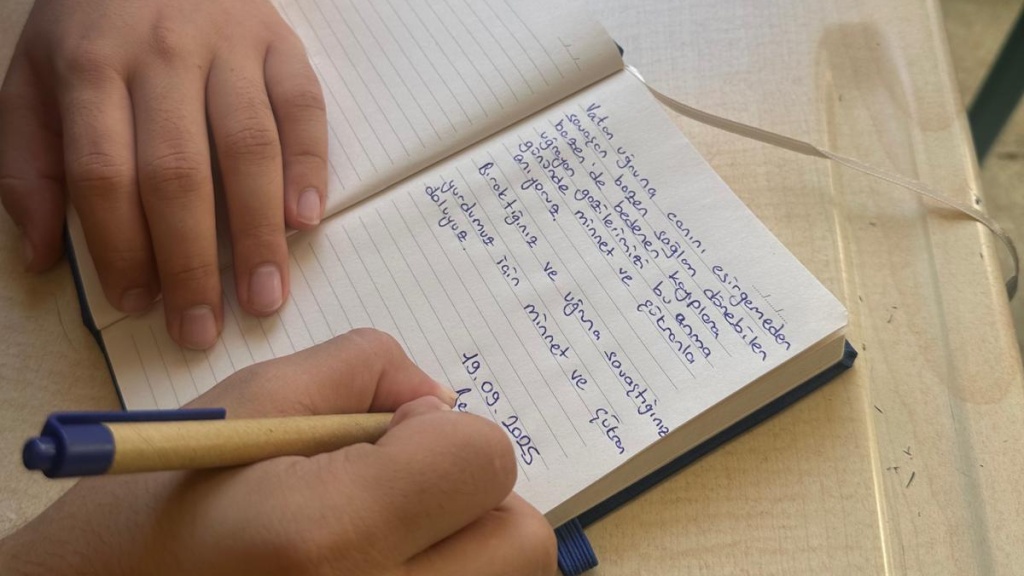 Vatan uğruna canını esirgemeden
savaşan bazen sağlan dönebilen
bazen de bedenen kayıplara
uğrayan gazilerimizi bu anma
gününde minnet ve gütranla
anıyoruz.
Bıraktığınız ve uğruna savaştığınız
yurdumuz için minnet ve gütran
doluyuz.
19.09.2025